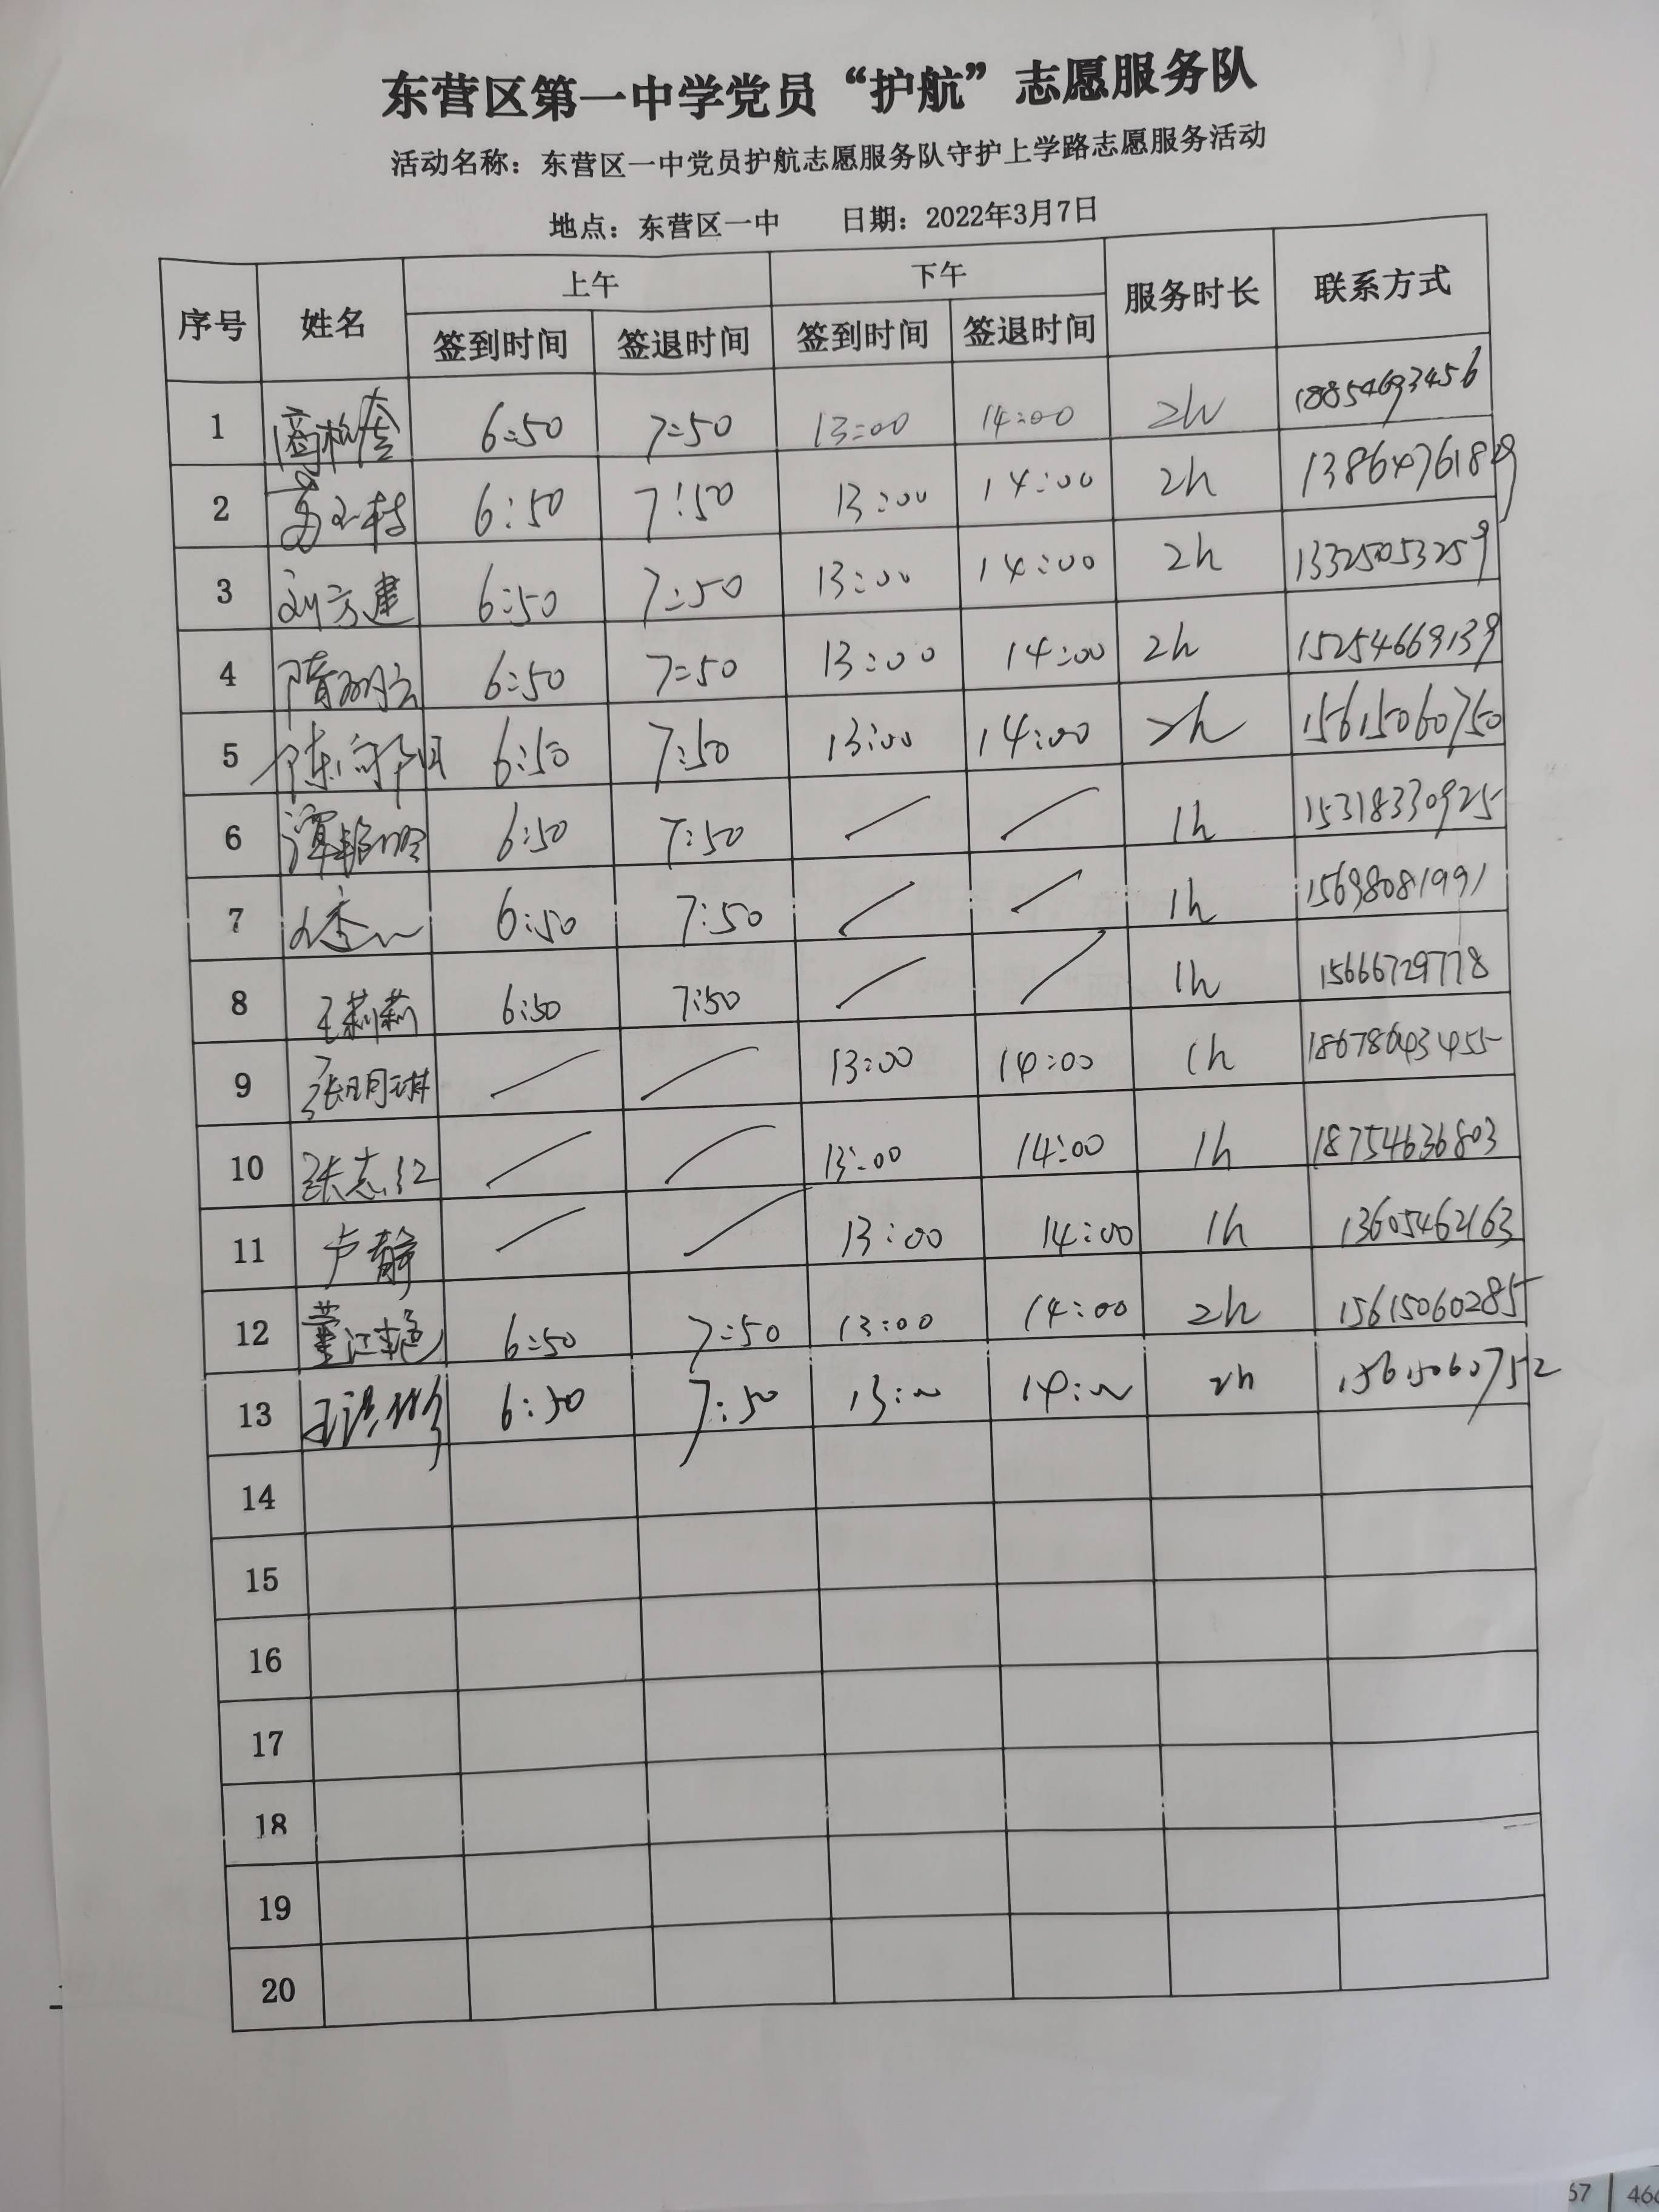 东营区第一中学党员“护航”志愿服务队
活动名称：东营区一中党员护航志愿服务队守护上学路志愿服务活动
地点：东营区一中 日期：2022年3月7日
序号 姓名 上午 下午 服务时长 联系方式
签到时间 签退时间 签到时间 签退时间
1 6:50 7:50 13:00 14:00 2h 18854693456
2 6:50 7:50 13:00 14:00 2h
3 刘方建 6:50 7:50 13:00 14:00 2h 13325053259
4 6:50 7:50 13:00 14:00 2h 15254669139
5 陈向阳 6:50 7:50 13:00 14:00 2h 15615060750
6 6:50 7:50 1h 15318330925
7 6:50 7:50 1h 15698081991
8 王莉莉 6:50 7:50 1h 15666729778
9 张明琳 13:00 14:00 1h 18678643455
10 张志红 13:00 14:00 1h 18754636803
11 卢静 13:00 14:00 1h 13605462163
12 董江艳 6:50 7:50 13:00 14:00 2h 15615060285
13 6:50 7:50 13:00 14:00 2h 15615060752
14
15
16
17
18
19
20
67 466